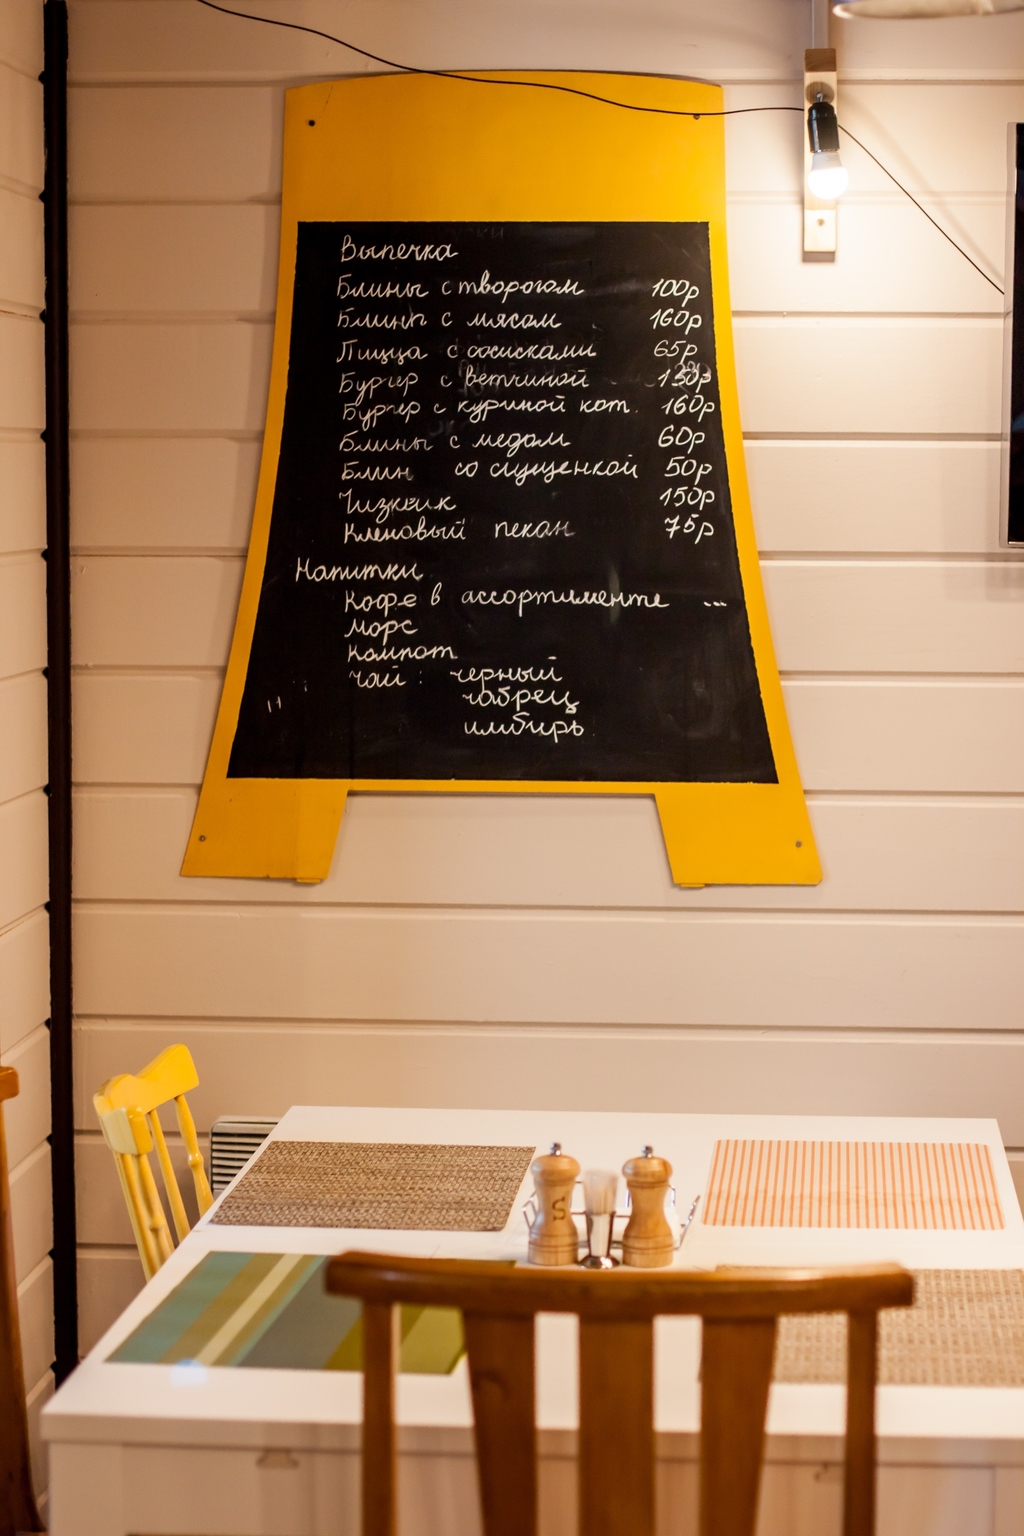 Выпечка
Блины с творогом 100р
Блины с мясом 160р
Пицца с сосисками 65р
Бургер с ветчиной 130р
Бургер с куриной кот. 160р
Блины с медом 60р
Блин со сгущенкой 50р
Чизкейк 150р
Кленовый пекан 75р
Напитки
Кофе в ассортименте ...
Морс
Компот
Чай : черный
чабрец
имбирь
S